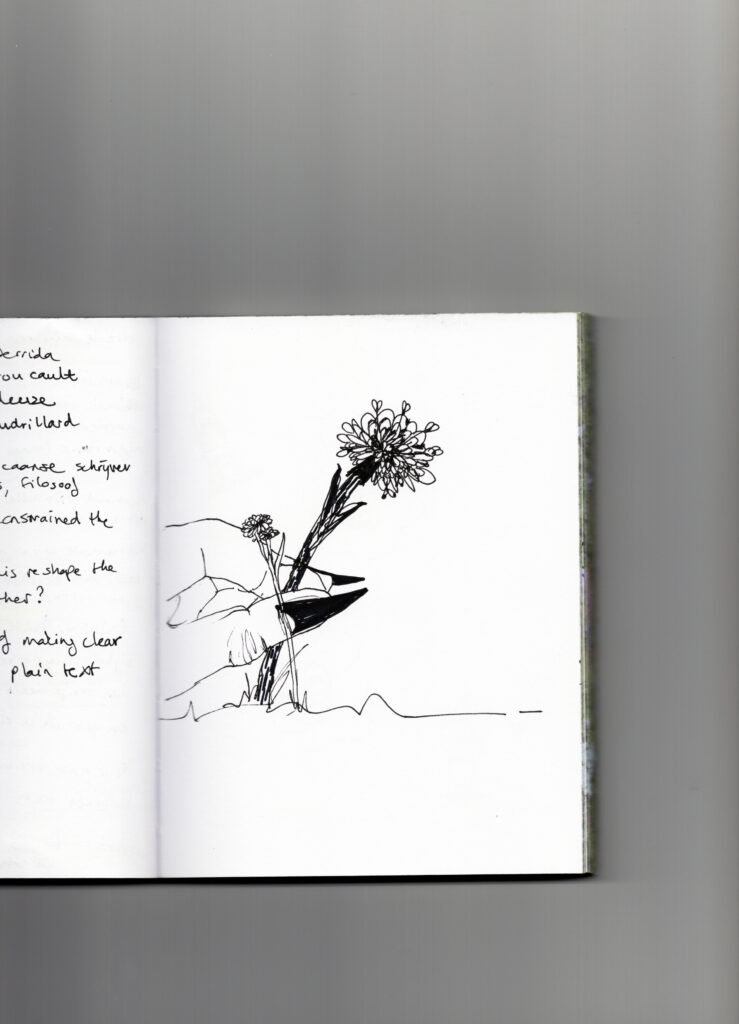 errida
ou cault
leuze
udrillard
caanse schrijver
s, filosoof
onstrained the
is reshape the
ther?
of making clear
plain text